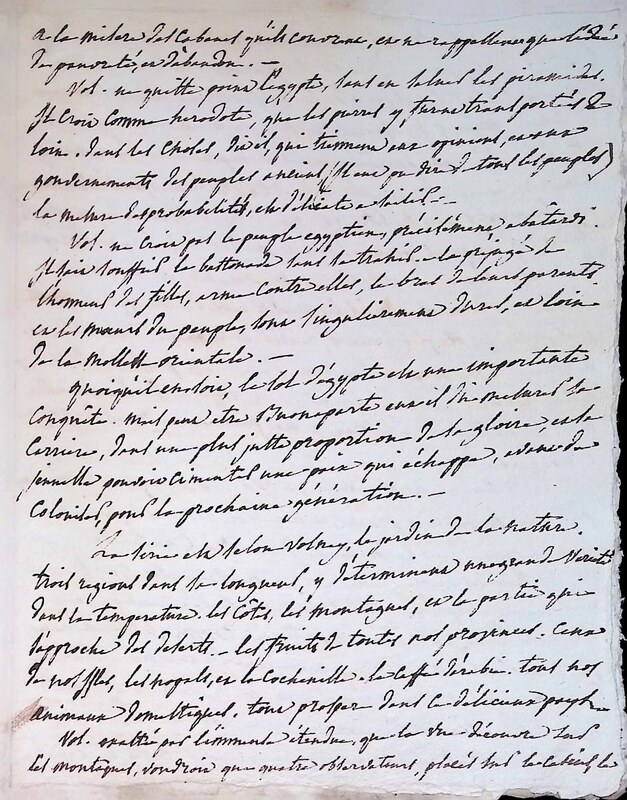 a la misere des cabanes qu'ils couvrent, et ne rappellent que l'idée
de pauvreté, et d'abandon. —
Vol. ne quitte point l'égypte, sans en saluer les piramides.
Il croit comme herodote, que les pierres y furent transportées de
loin. dans les choses, dit il, qui tiennent aux opinions, et aux
gouvernements des peuples anciens, (il eut pu dire de tous les peuples)
la mesure des probabilités, est délicate a saisir. —
Vol. ne croit pas le peuple egyptien, précisément abâtardi.
Il sait souffrir la bastonade sans se trahir. le préjugé de
l'honneur des filles, arme contre elles, le bras de leurs parents.
et les mœurs du peuple, sont singulierement dures, et loin
de la mollesse orientale. —
quoiqu'il en soit, le sol d'égypte est une importante
conquête. mais peut etre Buonaparte eut il du mesurer sa
carriere, dans une plus juste proportion de sa gloire, et la
sienne pouvoit cimenter une paix qui échappe, et donner des
colonies, pour la prochaine génération. —
La sirie est selon volney, le jardin de la nature.
trois regions dans sa longueur, y déterminent une grande varieté
dans la temperature. les côtes, les montagnes, et la partie qui
s'approche des deserts. — les fruits de toutes nos provinces. Ceux
de nos isles, les nopals, et la cochenille. le caffé d'arabie. tous nos
animaux domestiques. tous prosper dans ce délicieux pays. —
Vol. exalté par l'immense étendue, que la vue découvre sur
les montagnes, voudroit que quatre observateurs, placés sur le la